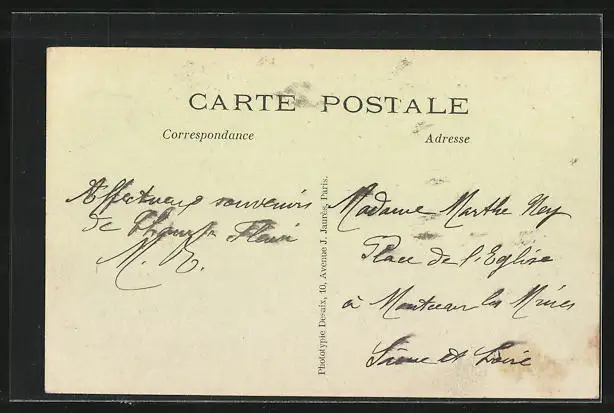 CARTE POSTALE
Correspondance
Adresse
Affectueux souvenirs
de Champ Fleuri
M. E.
Phototypie Desaix, 10, Avenue J. Jaurès, Paris.
Madame Marthe Ney
Place de l'Eglise
à Montceau les Mines
Saône et Loire